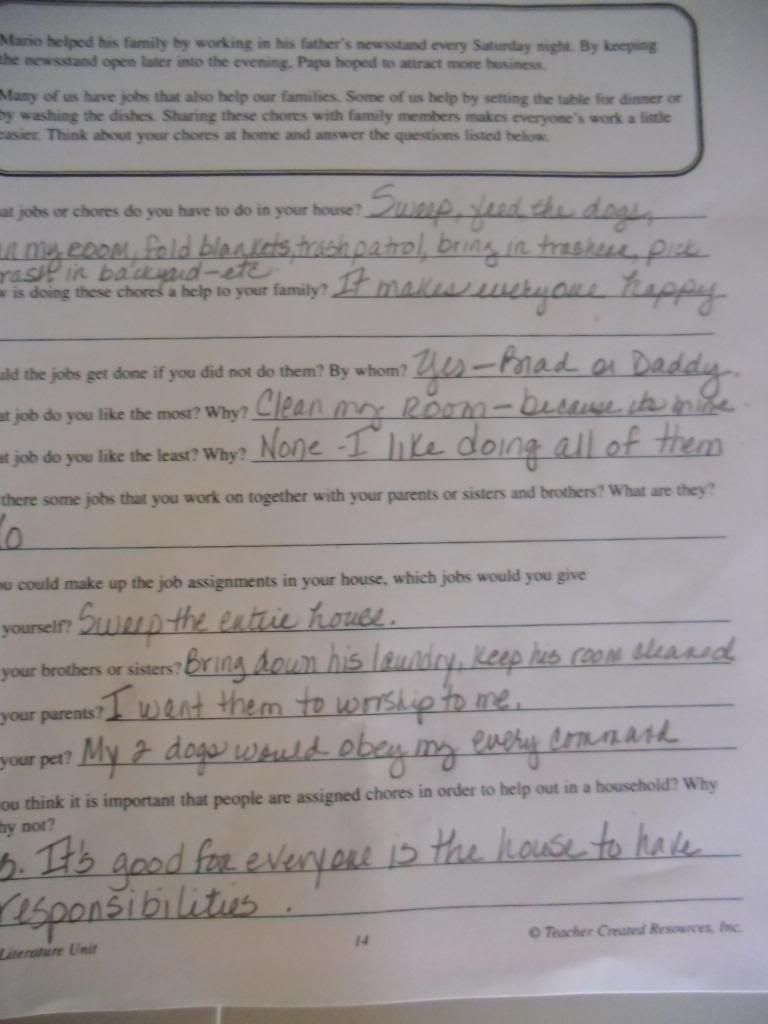 Mario helped his family by working in his father's newsstand every Saturday night. By keeping
the newsstand open later into the evening, Papa hoped to attract more business.
Many of us have jobs that also help our families. Some of us help by setting the table for dinner or
by washing the dishes. Sharing these chores with family members makes everyone's work a little
easier. Think about your chores at home and answer the questions listed below.
at jobs or chores do you have to do in your house? Sweep, feed the dogs,
n my room, fold blankets, trash patrol, bring in trashcan, pick
rash in backyard-etc.
w is doing these chores a help to your family? It makes everyone happy
uld the jobs get done if you did not do them? By whom? Yes - Brad or Daddy.
at job do you like the most? Why? Clean my Room - because its mine
at job do you like the least? Why? None - I like doing all of them
there some jobs that you work on together with your parents or sisters and brothers? What are they?
o
ou could make up the job assignments in your house, which jobs would you give
yourself? Sweep the entire house.
your brothers or sisters? Bring down his laundry, keep his room cleaned
your parents? I want them to worship to me.
your pet? My 2 dogs would obey my every command
ou think it is important that people are assigned chores in order to help out in a household? Why
hy not?
s. It's good for everyone is the house to have
responsibilities.
Literature Unit 14 © Teacher Created Resources, Inc.